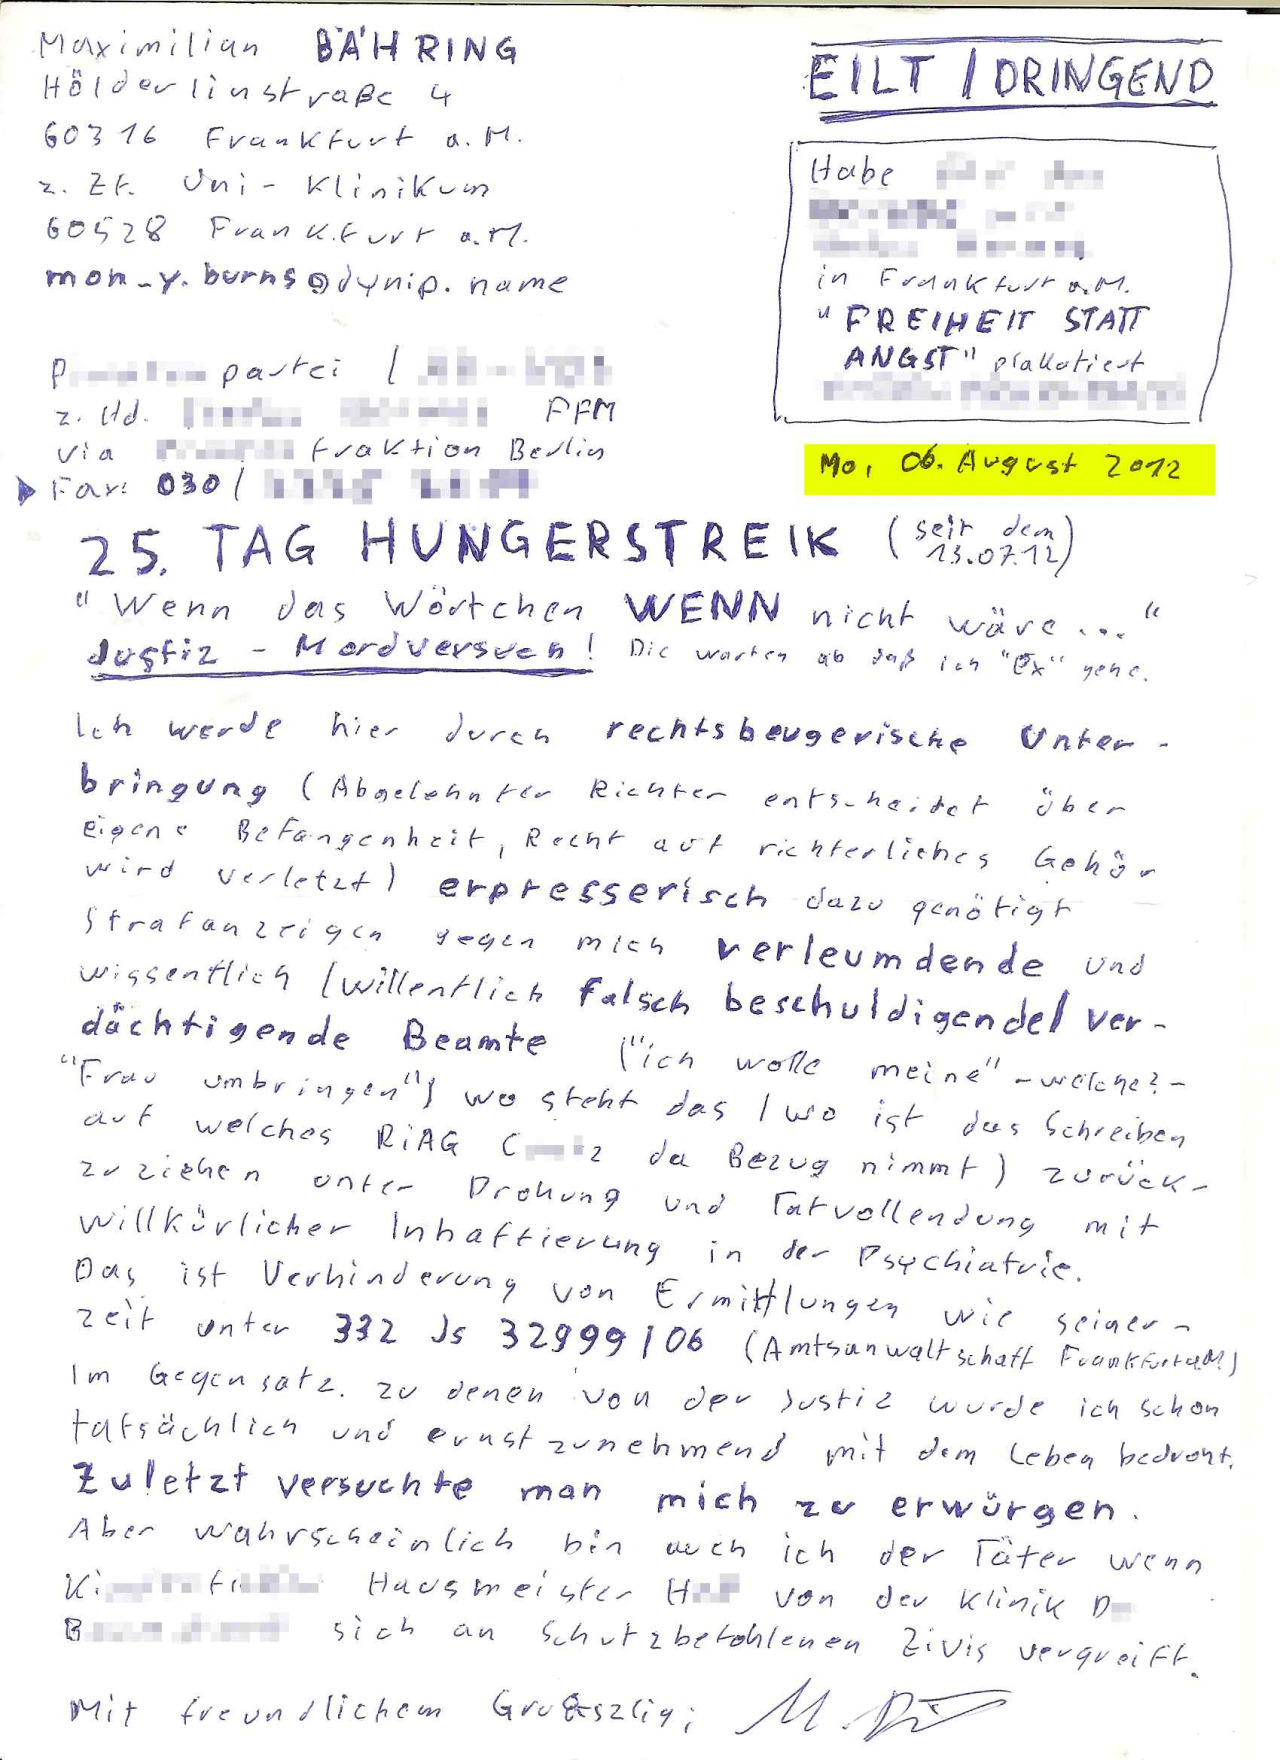 Maximilian BÄHRING
Hölderlinstraße 4
60316 Frankfurt a.M.
z. Zt. Uni-Klinikum
60528 Frankfurt a.M.
mon-y.burns@dynip.name
EILT / DRINGEND
Habe
in Frankfurt a.M.
"FREIHEIT STATT
ANGST" plakatiert
P partei /
z. Hd. FFM
via fraktion Berlin
Fax: 030 /
Mo, 06. August 2012
25. TAG HUNGERSTREIK (seit dem
13.07.12)
"Wenn das Wörtchen WENN nicht wäre..."
Justiz - Mordversuch! Die warten ab daß ich "Ex" gehe.
Ich werde hier durch rechtsbeugerische Unter-
bringung (Abgelehnter Richter entscheidet über
eigene Befangenheit, Recht auf richterliches Gehör
wird verletzt) erpresserisch dazu genötigt
Strafanzeigen gegen mich verleumdende und
wissentlich/willentlich falsch beschuldigende/ver-
dächtigende Beamte ("ich wolle meine" -welche?-
"Frau umbringen") wo steht das / wo ist das Schreiben
auf welches RiAG C z da Bezug nimmt) zurück-
zuziehen unter Drohung und Tatvollendung mit
willkürlicher Inhaftierung in der Psychiatrie.
Das ist Verhinderung von Ermittlungen wie seiner-
zeit unter 332 Js 32999/06 (Amtsanwaltschaft Frankfurt a.M)
Im Gegensatz. zu denen von der Justiz wurde ich schon
tatsächlich und ernstzunehmend mit dem Leben bedroht.
Zuletzt versuchte man mich zu erwürgen.
Aber wahrscheinlich bin auch ich der Täter wenn
Ki Hausmeister H von der Klinik D
B sich an Schutzbefohlenen Zivis vergreift.
Mit freundlichem